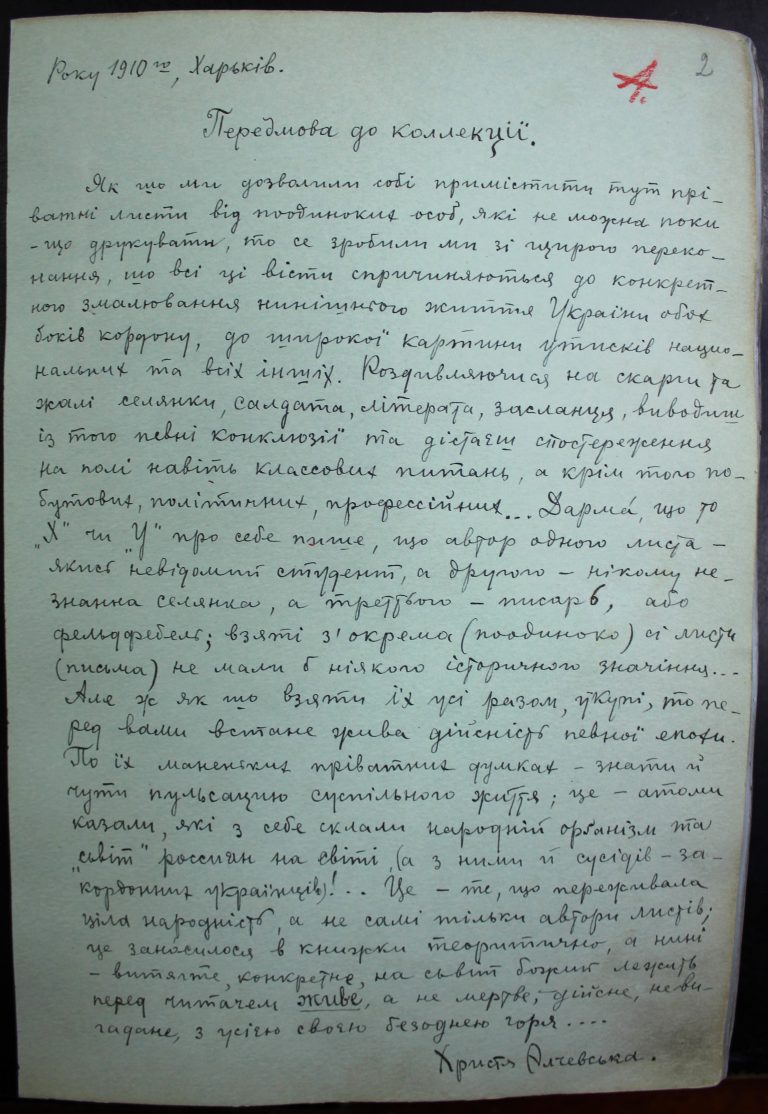 2
А.
Року 1910го, Харьків.
Передмова до коллекції.
Як що ми дозволили собі примістити тут прі-
ватні листи від поодиноких особ, які не можна поки
-що друкувати, то се зробили ми зі щирого переко-
нання, що всі ці вісти спричиняються до конкрет-
ного змалювання нинішнього життя України обох
боків кордону, до широкої картини утисків націо-
нальних та всіх інших. Роздивляючися на скарги та
жалі селянки, салдата, літерата, засланця, виводиш
із того певні конклюзії та дістаєш спостереження
на полі навіть классових питань, а крім того по-
бутових, політичних, профессійних... Дарма́, що то
„Х" чи „У" про себе пише, що автор одного листа -
якийсь невідомий студент, а другого - нікому не-
знанна селянка, а третього - писарь, або
фельдфебель; взяті з'окрема (поодиноко) сі листи
(письма) не мали б ніякого історичного значіння...
Але ж як що взяти їх усі разом, укупі, то пе-
ред вами встане жива дійсність певної епохи.
По їх маненьких пріватних думках - знати й
чути пульсацию суспільного життя; це - атоми
казали, які з себе склали народній орґанізм та
„сьвіт" россиян на світі, (а з ними й сусідів - за-
кордонних українців)!.. Це - те, що переживала
ціла народність, а не самі тільки автори листів;
це заносилося в книжки теоритично, а нині
- витягте, конкретне, на сьвіт божий лежить
перед читачем живе, а не мертве, дійсне, неви-
гадане, з усією своєю безоднею горя....
Христя Алчевська.